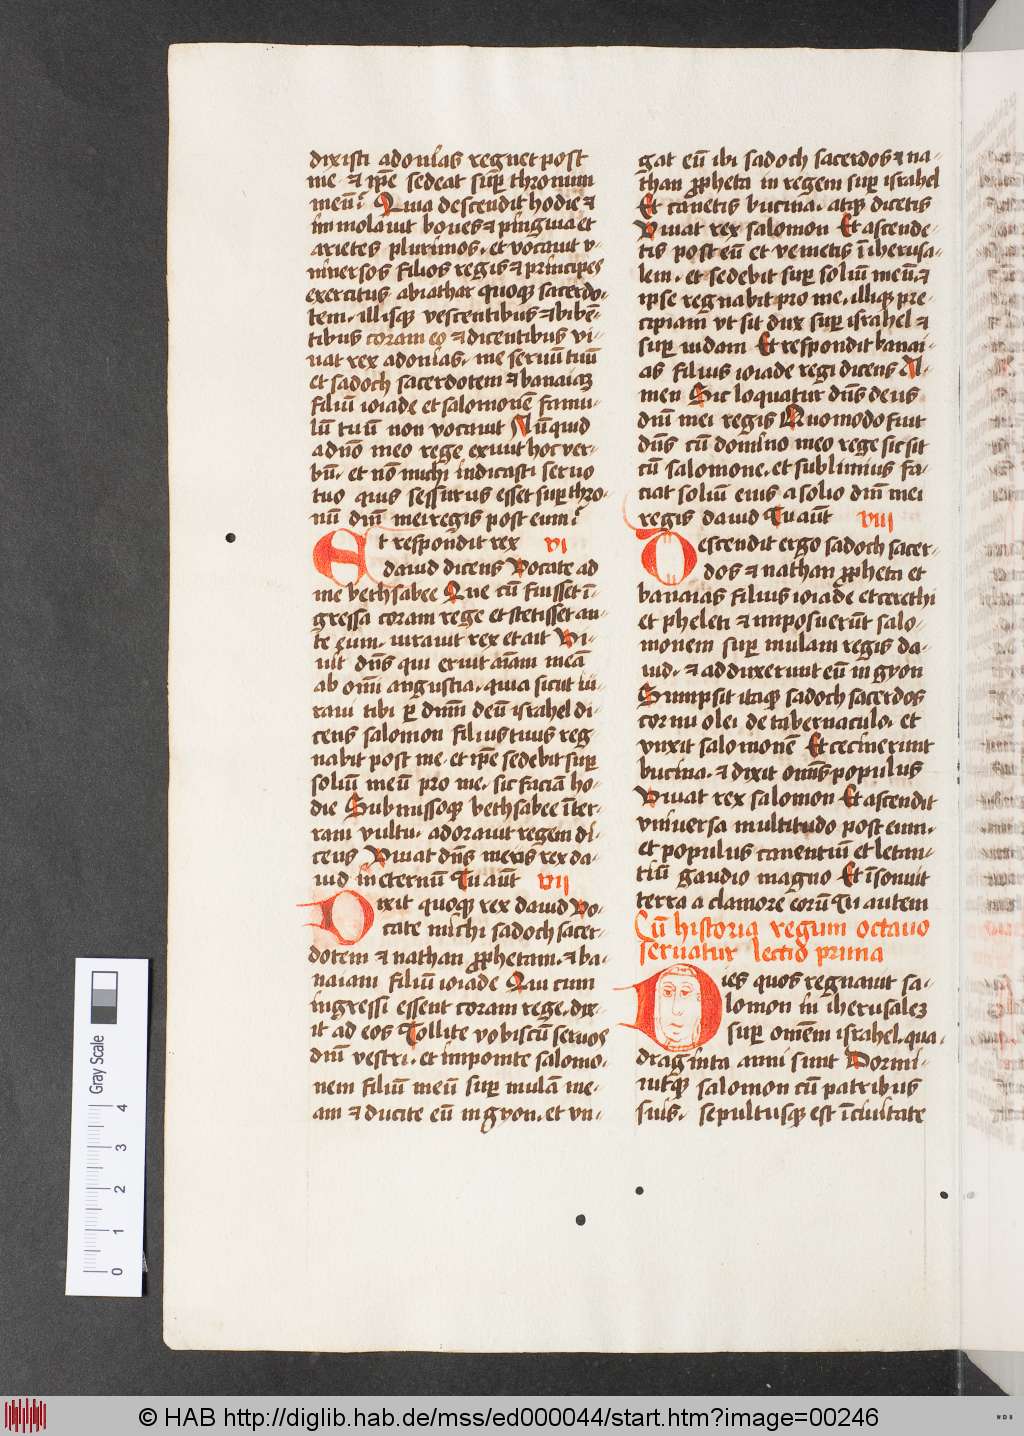 dixisti adonias regnet post
me ⁊ ip̄e sedeat sup̱ thronum
meū? Quia descendit hodie ⁊
immolauit boues ⁊ pinguia et
arietes plurimos. et vocauit v-
niuersos filios regis ⁊ principes
exercitus abiathar quoqꝫ sacerdo-
tem. illisqꝫ vescentibus ⁊ bibē-
tibus coram eo ⁊ dicentibus vi-
uat rex adonias. me seruū tuū
et sadoch sacerdotem ⁊ banaiaꝫ
filiū ioiade et salomonē famu-
lū tuū non vocauit Nūquid
a dn̄o meo rege exiuit hoc ver-
bū. et nō michi indicasti seruo
tuo quis sessurus esset sup̱ thro-
nū dn̄i mei regis post eum?
Et respondit rex vi
dauid dicens Vocate ad
me bethsabee Que cū fuisset ī-
gressa coram rege et stetisset an-
te eum. iurauit rex et ait Vi-
uit dn̄s qui eruit aīam meā
ab om̄i angustia. quia sicut iu-
raui tibi p̱ dn̄m deū israhel di-
cens salomon filius tuus reg
nabit post me. et ip̄e sedebit sup̱
soliū meū pro me. sic faciā ho-
die Submissoqꝫ bethsabee ī ter-
ram vultu. adorauit regem di-
cens Viuat dn̄s meus rex da-
uid in eternū Tu aūt vii
Dixit quoqꝫ rex dauid Vo-
cate michi sadoch sacer-
dotem ⁊ nathan ꝓphetam. ⁊ ba-
naiam filiū ioiade Qui cum
ingressi essent coram rege. dix-
it ad eos Tollite vobiscū seruos
dn̄i vestri. et imponite salomo-
nem filiū meū sup̱ mulā me-
am ⁊ ducite eū in gyon. et vn-
gat eū ibi sadoch sacerdos ⁊ na-
than ꝓpheta in regem sup̱ israhel
Et canetis bucina. atqꝫ dicetis
Viuat rex salomon Et ascende-
tis post eū et venietis ī iherusa-
lem. et sedebit sup̱ soliū meū. ⁊
ipse regnabit pro me. illiqꝫ pre-
cipiam vt sit dux sup̱ israhel ⁊
sup̱ iudam Et respondit banai-
as filius ioiade regi dicens A-
men Sic loquatur dn̄s deus
dn̄i mei regis Quomodo fuit
dn̄s cū domino meo rege sic sit
cū salomone. et sublimius fa-
ciat soliū eius a solio dn̄i mei
regis dauid Tu aūt viii
Descendit ergo sadoch sacer-
dos ⁊ nathan ꝓpheta et
banaias filius ioiade et cerethi
et pheleti ⁊ imposuerūt salo-
monem sup̱ mulam regis da-
uid. ⁊ adduxerunt eū in gyon
Sumpsit itaqꝫ sadoch sacerdos
cornu olei de tabernaculo. et
vnxit salomonē Et cecinerunt
bucina. ⁊ dixit omīs populus
Viuat rex salomon Et ascendit
vniuersa multitudo post eum.
et populus canentiū et letan-
tiū gaudio magno Et īsonuit
terra a clamore eorū Tu autem
Cū historia regum octauo
seruatur lectio prima
Dies quos regnauit sa-
lomon in iherusaleꝫ
sup̱ omēm israhel. qua-
draginta anni sunt Dormi-
uitqꝫ salomon cū patribus
suis. sepultusqꝫ est ī ciuitate
Gray Scale
4
3
2
1
0
© HAB http://diglib.hab.de/mss/ed000044/start.htm?image=00246